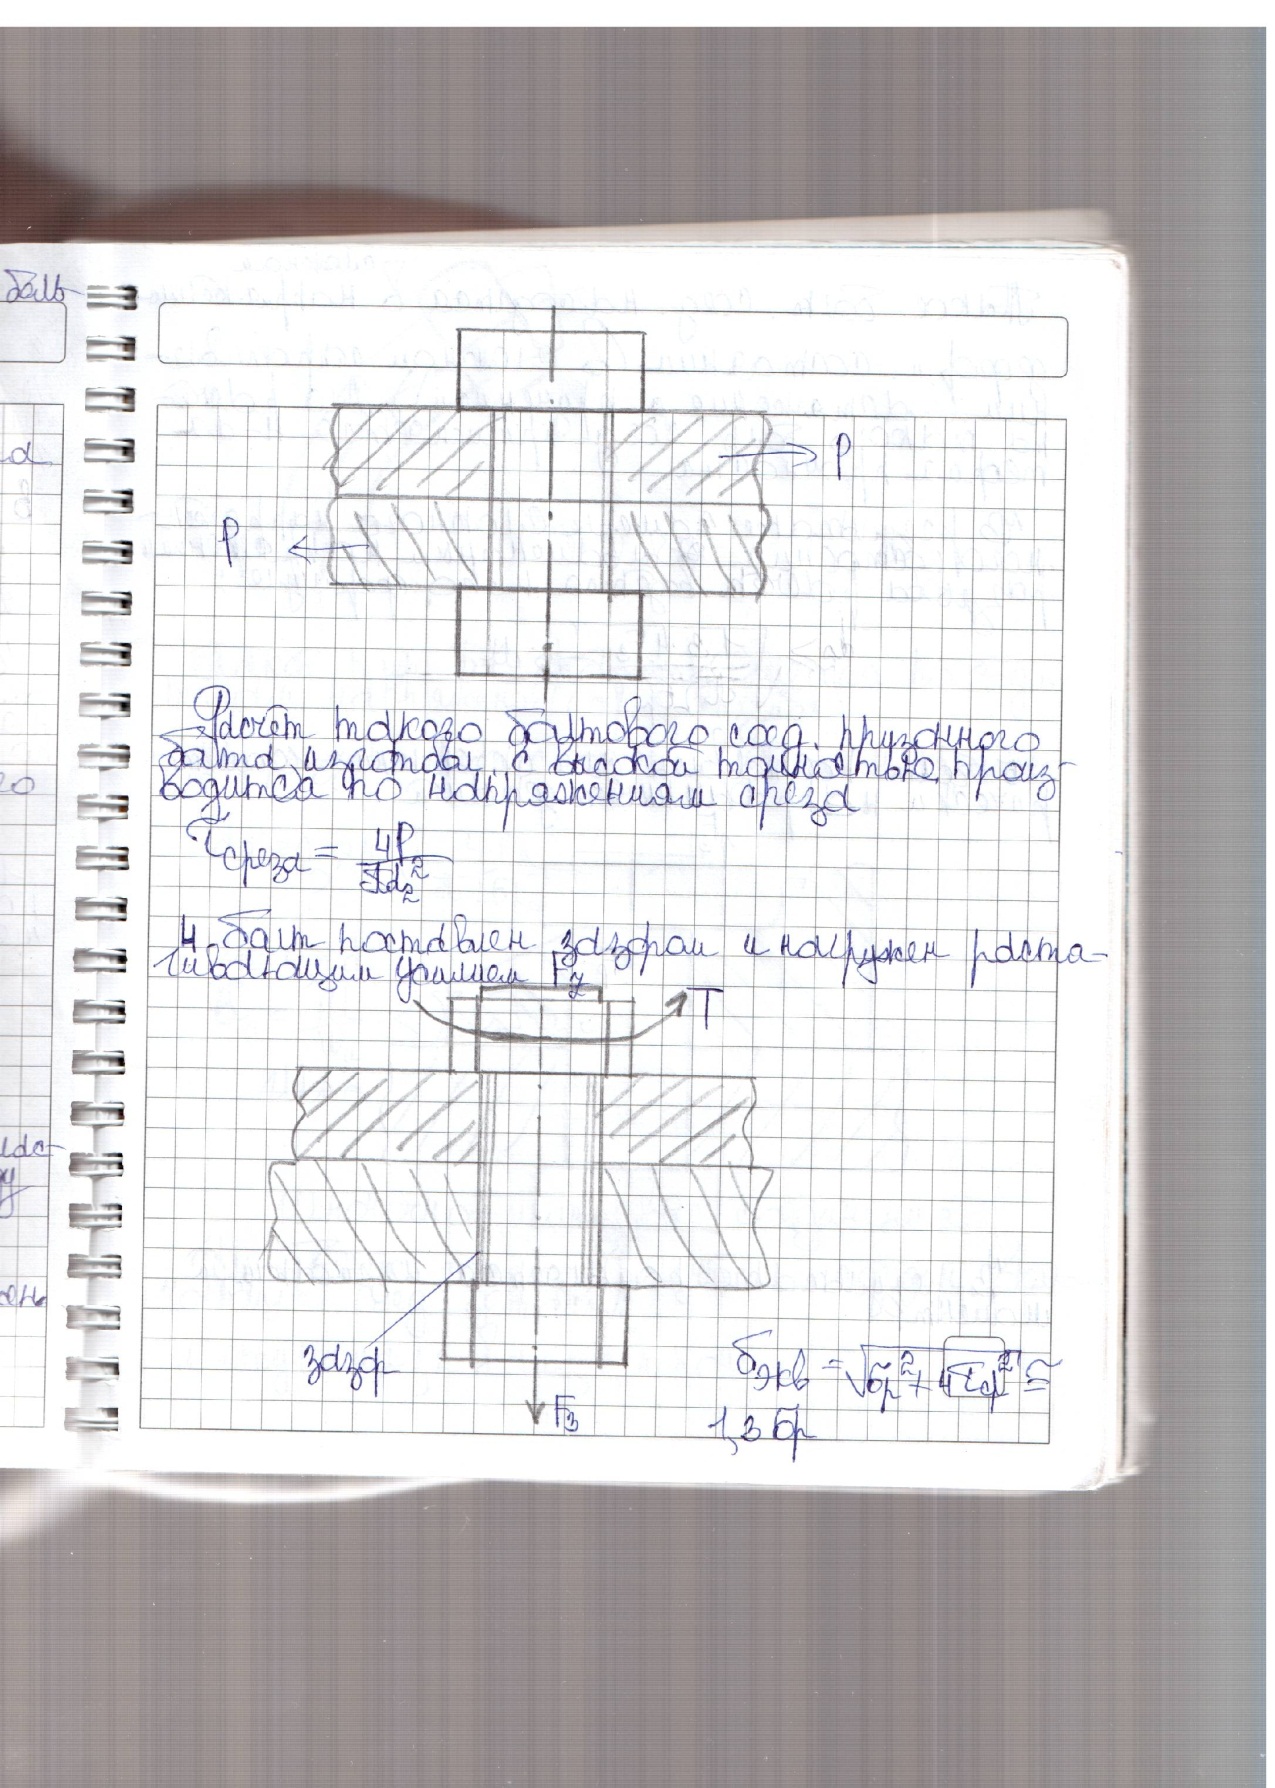 боль-
P
P
Расчёт такого болтового соед. призонного
болта изготовл. с высокой точностью, произ-
водится по напряжениям среза
τсреза = 4P / πd₂²
4. болт поставлен зазором и нагружен растя-
гивающим усилием Fz
T
зазор
Fз
σэкв = √σр² + 4τср² ≅
1,3 σр